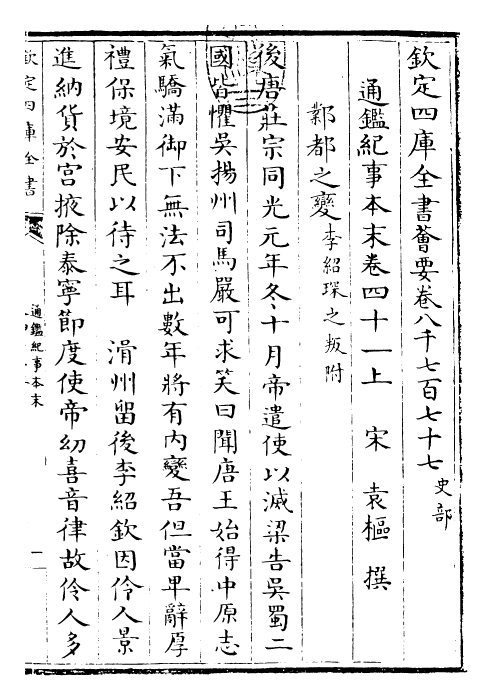 欽定四庫全書薈要卷八千七百七十七 史部
通鑑紀事本末卷四十一上 宋 袁樞 撰
鄴都之變 李紹琛之叛附
後唐莊宗同光元年冬十月帝遣使以滅梁告吳蜀二
國皆懼吳揚州司馬嚴可求笑曰聞唐王始得中原志
氣驕滿御下無法不出數年將有內變吾但當卑辭厚
禮保境安民以待之耳 滑州留後李紹欽因伶人景
進納貨於宮掖除泰寧節度使帝幼喜音律故伶人多
欽定四庫全書
通鑑紀事本末